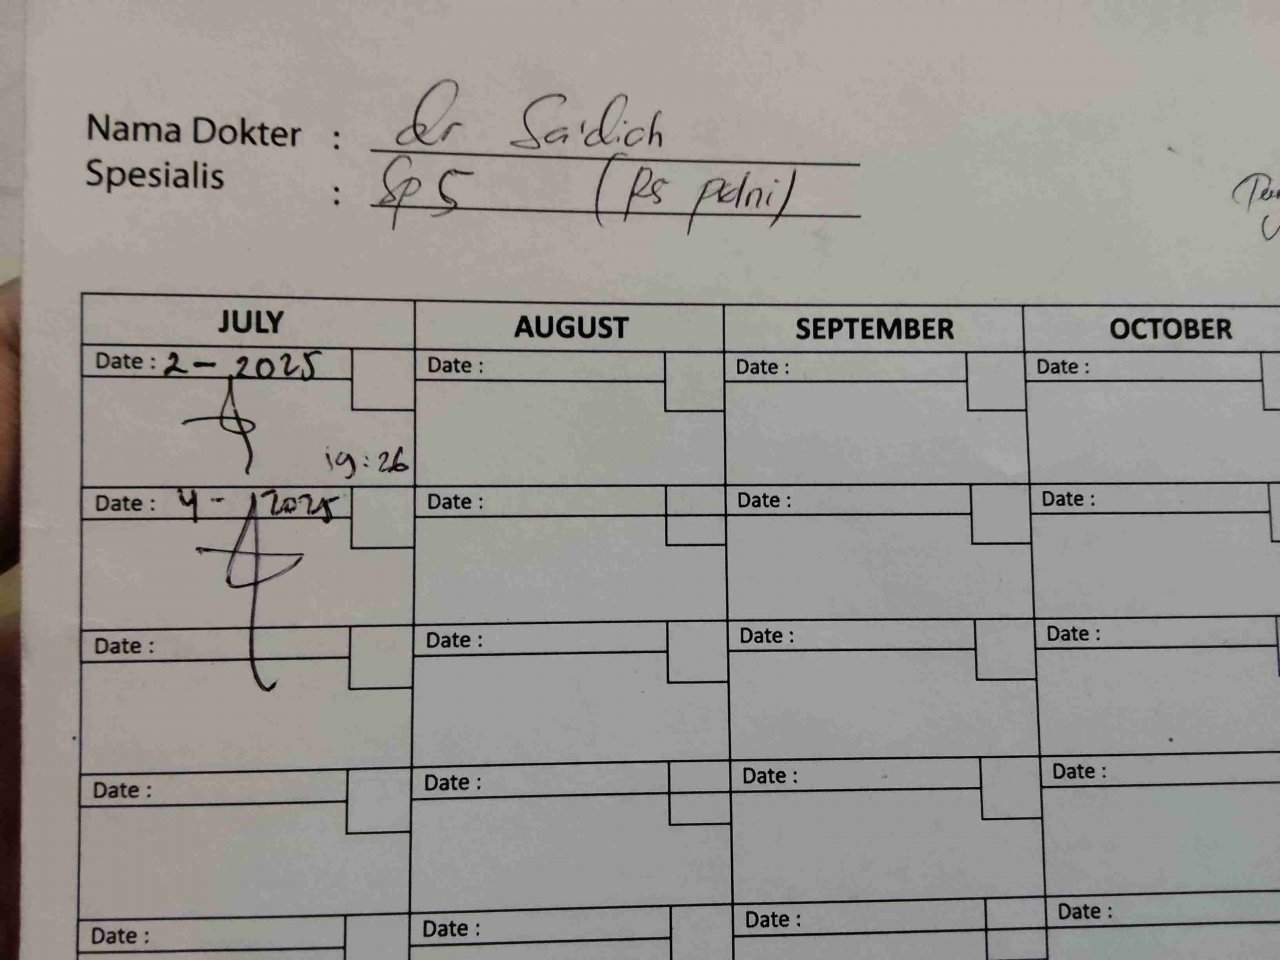 Nama Dokter : dr Sa'dich
Spesialis : Sp S (RS pelni)
JULY AUGUST SEPTEMBER OCTOBER
Date : 2 - 2025 Date : Date : Date :
ig : 26
Date : 4 - 2025 Date : Date : Date :
Date : Date : Date : Date :
Date : Date : Date : Date :
Date : Date : Date : Date :